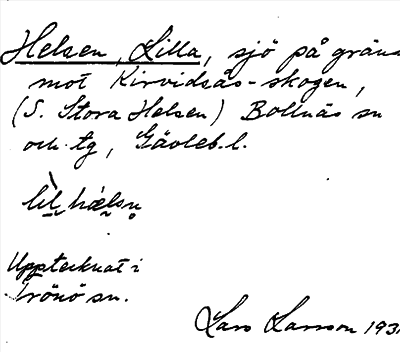 Helsen, Lilla, sjö på gräns
mot Kirvidsås-skogen,
(S. Stora Helsen) Bollnäs sn
och tg, Gävleb. l.
lìl hælsn̥
Upptecknat i
Trönö sn.
Lars Larsson 193